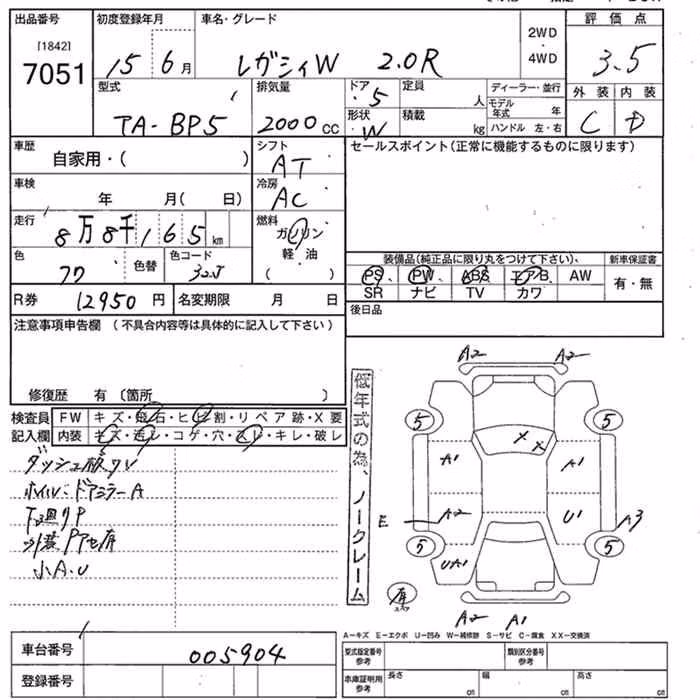 出品番号 初度登録年月 車名・グレード 2WD 4WD 評価点
[1842]
7051 15 6月 レガシィW 2.0R 3.5
型式 排気量 ドア 5 定員 人 ディーラー・並行 外装 内装
TA-BP5 2000cc 形状 W 積載 kg モデル年式 年 ハンドル 左・右 C D
車歴 シフト セールスポイント(正常に機能するものに限ります)
自家用・( ) AT
車検 冷房
年 月( 日) AC
走行 燃料
8万8千165km ガソリン
軽・油
( )
色 色替 色コード 装備品(純正品に限り丸をつけて下さい)、 新車保証書
32J PS PW ABS エアB AW 有・無
R券 12950円 名変期限 月 日 SR ナビ TV カワ
注意事項申告欄 (不具合内容等は具体的に記入して下さい) 後日品
修復歴 有 〔箇所 〕
検査員 FW キズ・飛石・ヒビ割・リペア跡・X要
記入欄 内装 キズ・汚レ・コゲ・穴・スレ・キレ・破レ
ホイル・ドアミラーA
下廻りP
小A.U
低年式の為、ノークレーム
A2 A2
5 5
A1 A1
E A2 U1 A3
5 5
UA1
X X
A2 A1
A−キズ E−エクボ U−凹み W−補修跡 S−サビ C−腐食 XX−交換済
車台番号 005904 型式指定番号 参考 類別区分番号 参考
登録番号 車庫証明用 参考 長さ cm 幅 cm 高さ cm